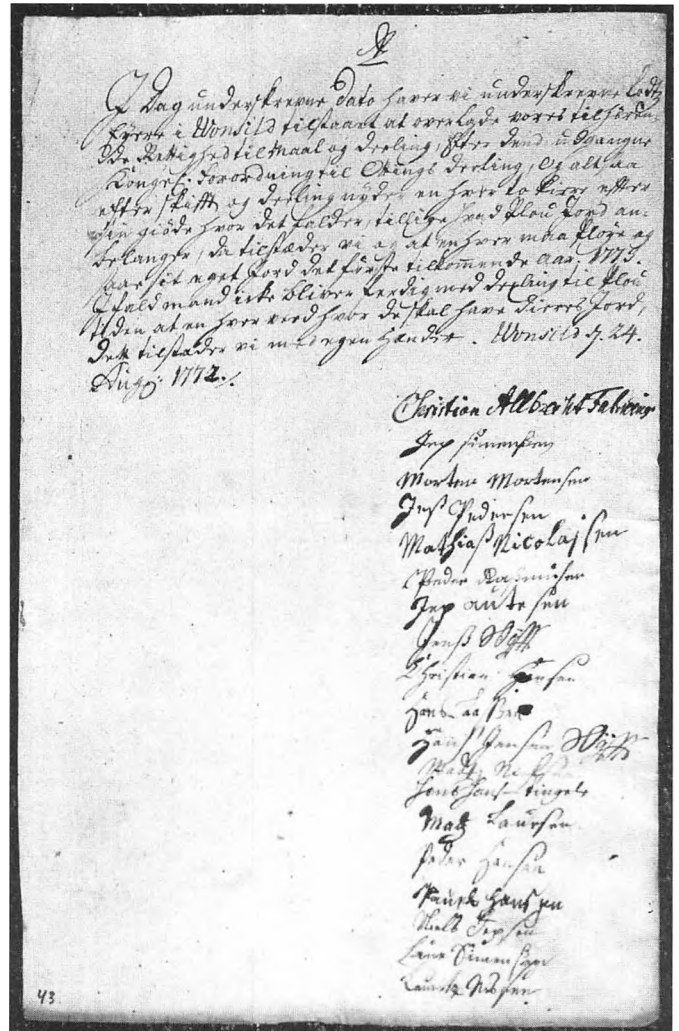 A
I Dag underskrevne Dato haver vi underskrevne Lodtz
Eyere i Wonsild tilstaart at overlade vores tilhören-
de Rettighed til Maal og deeling, efter dend udgangne
Kongel: Forordning til Deeling, Og altsaa
efter skifft og deeling nyder en hver to kiere effter
sin giöde hvor det falder, tillige hvad Plou Jord an-
belanger, da tilstæder vi og at en hver maa Plöye og
saae sit eget Jord det förste tilkommende Aar. 1773.
Ifald mand icke bliver ferdig med deeling til Plou
tiden at en hver veed hvor de skal have dieres Jord,
dette tilstæder vi med egen Hænder. Wonsild d. 24.
Aug: 1772.
Christian Allbrecht
Jep Simensen
Morten Mortensen
Jens Pedersen
Mathias Nicolajsen
Peder Rasmusen
Jep autesen
Jens
Christian Hansen
Hans
Hans Jansen
Hans Hans
Matz Laursen
Peder Hansen
Pauel Hansen
Niels Jepsen
Simensen
43